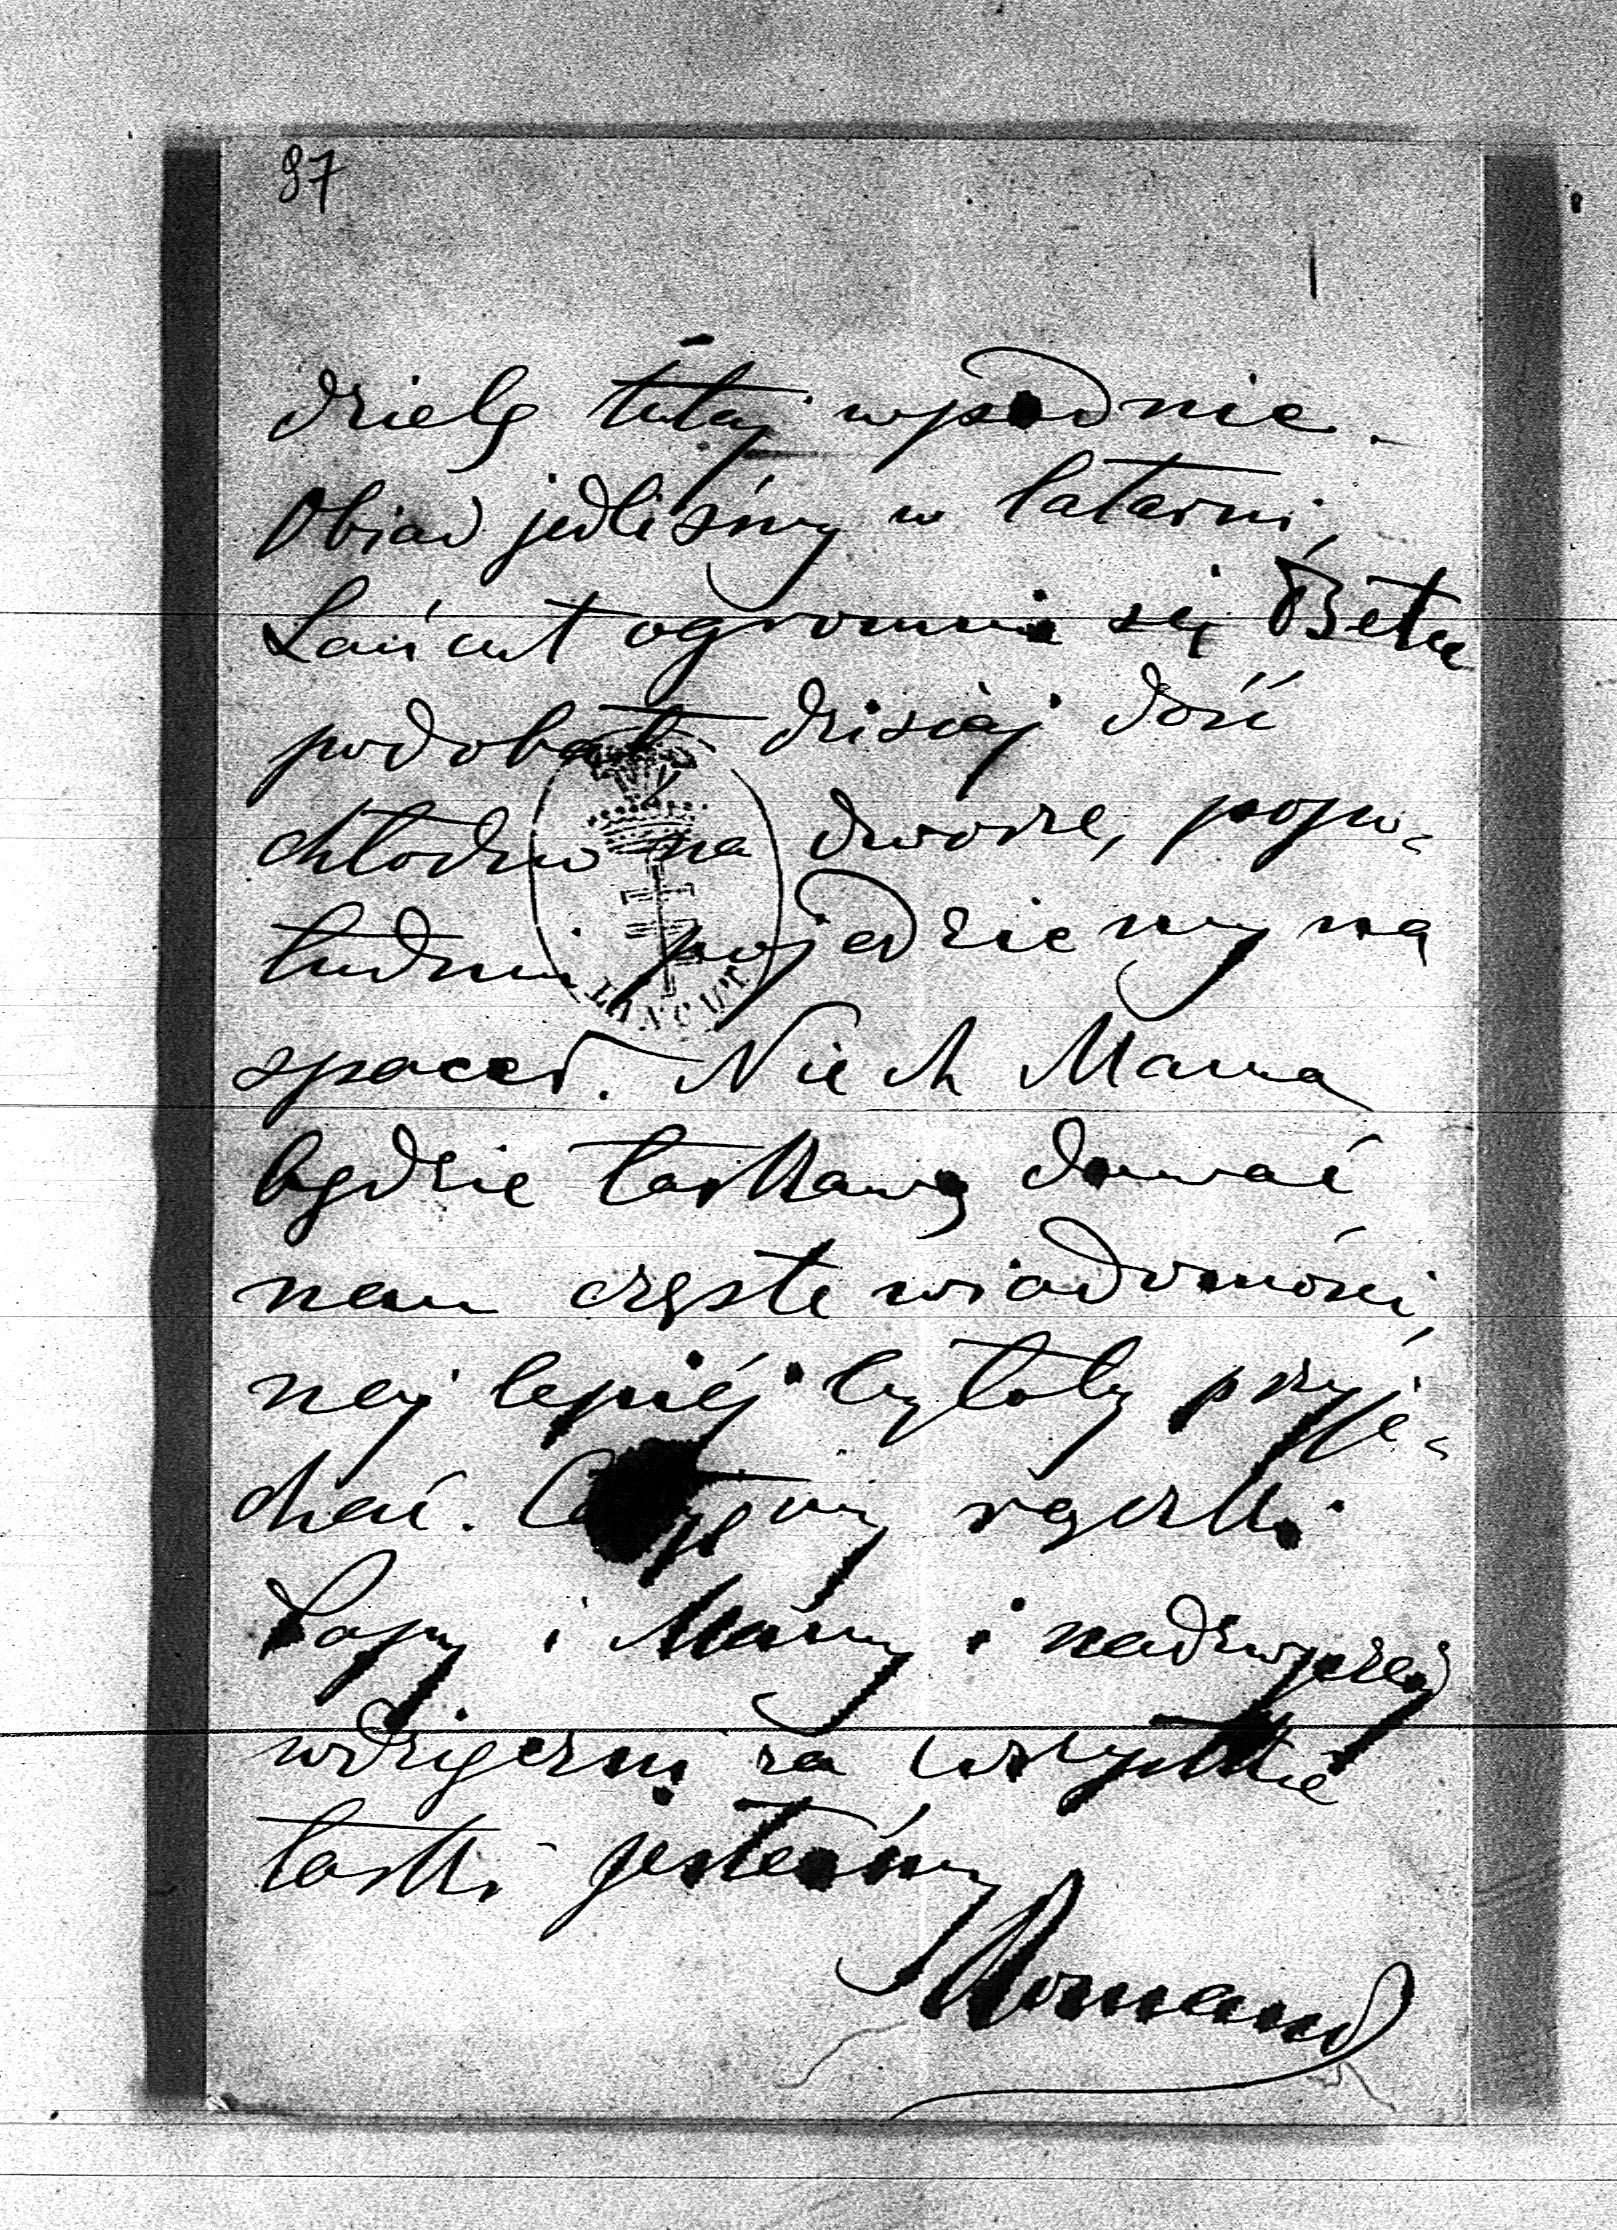 87
dzielę tutaj w południe.
Obiad jedliśmy w latarni,
Łańcut ogromnie się Betce
podobał dzisiaj dość
chłodno na dworze, popo-
łudniu pojedziemy na
spacer. Niech Mama
będzie łaskawą dawać
nam częste wiadomości,
najlepiéj byłoby przyje-
chać. Całujemy rączki
Papy i Mamy i nadzwyczaj
wdzięczni za wszystkie
łaski jesteśmy
Roman
ŁAŃCUT